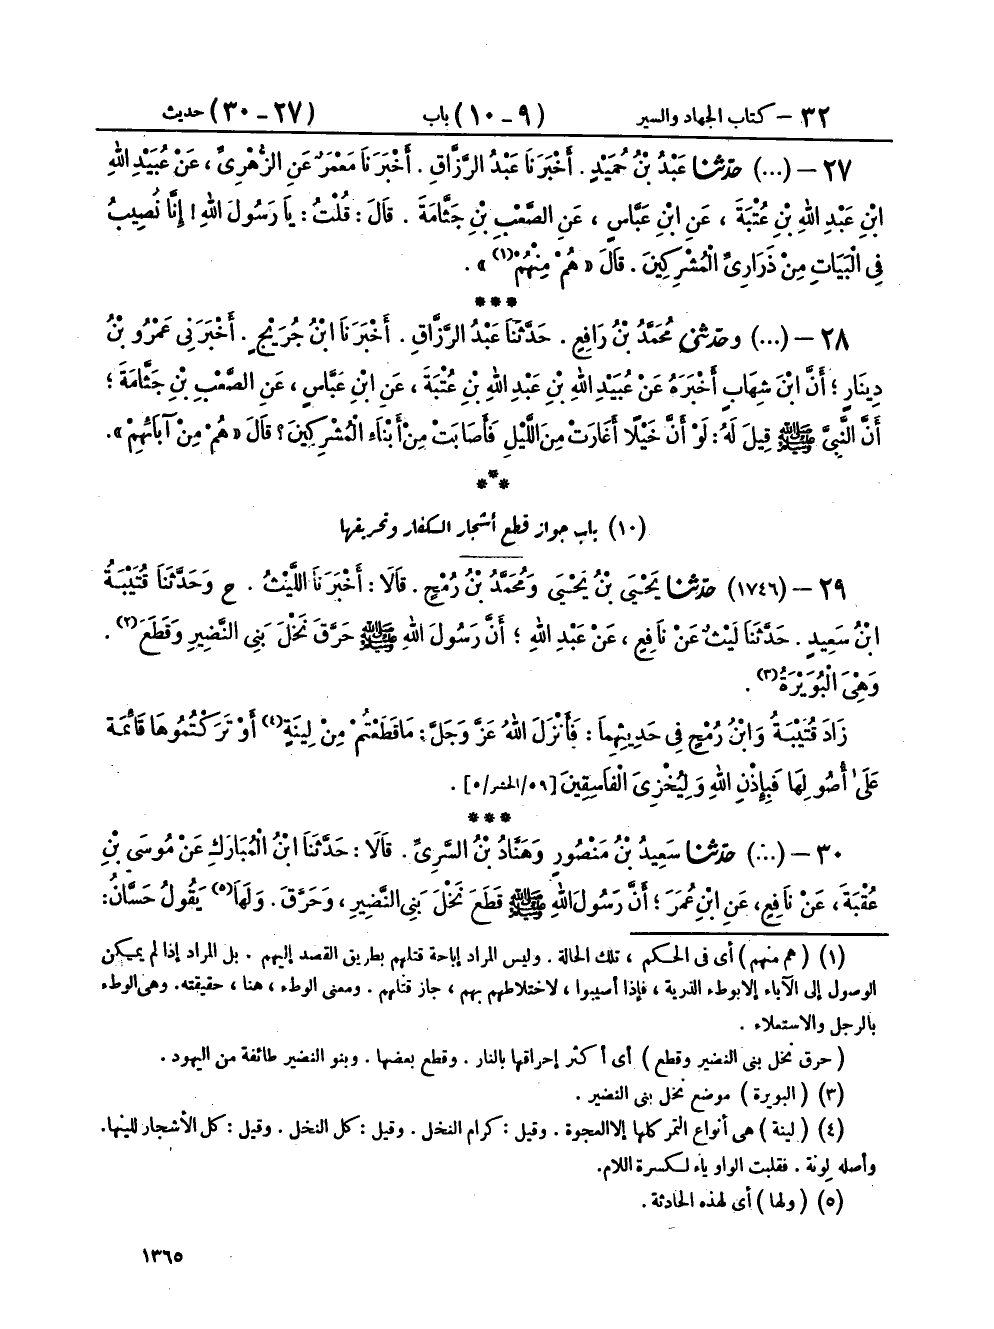 ٣٢ – كتاب الجهاد والسير (٩ – ١٠) باب (٢٧ – ٣٠) حديث
٢٧ – (...) حدّثنا عَبْدُ بْنُ حُمَيْدٍ . أَخْبَرَنَا عَبْدُ الرَّزَّاقِ . أَخْبَرَنَا مَعْمَرٌ عَنِ الزُّهْرِيِّ ، عَنْ عُبَيْدِ اللهِ
ابْنِ عَبْدِ اللهِ بْنِ عُتْبَةَ ، عَنِ ابْنِ عَبَّاسٍ ، عَنِ الصَّعْبِ بْنِ جَثَّامَةَ . قَالَ : قُلْتُ : يَا رَسُولَ اللهِ ! إِنَّا نُصِيبُ
فِي الْبَيَاتِ مِنْ ذَرَارِيِّ الْمُشْرِكِينَ . قَالَ « هُمْ مِنْهُمْ(١) » .
***
٢٨ – (...) وحدّثني مُحَمَّدُ بْنُ رَافِعٍ . حَدَّثَنَا عَبْدُ الرَّزَّاقِ . أَخْبَرَنَا ابْنُ جُرَيْجٍ . أَخْبَرَنِي عَمْرُو بْنُ
دِينَارٍ ؛ أَنَّ ابْنَ شِهَابٍ أَخْبَرَهُ عَنْ عُبَيْدِ اللهِ بْنِ عَبْدِ اللهِ بْنِ عُتْبَةَ ، عَنِ ابْنِ عَبَّاسٍ ، عَنِ الصَّعْبِ بْنِ جَثَّامَةَ ؛
أَنَّ النَّبِيَّ ﷺ قِيلَ لَهُ : لَوْ أَنَّ خَيْلًا أَغَارَتْ مِنَ اللَّيْلِ فَأَصَابَتْ مِنْ أَبْنَاءِ الْمُشْرِكِينَ ؟ قَالَ « هُمْ مِنْ آبَائِهِمْ » .
***
(١٠) باب جواز قطع أشجار الكفار وتحريقها
٢٩ – (١٧٤٦) حدّثنا يَحْيَى بْنُ يَحْيَى وَمُحَمَّدُ بْنُ رُمْحٍ . قَالَا : أَخْبَرَنَا اللَّيْثُ . ح وَحَدَّثَنَا قُتَيْبَةُ
ابْنُ سَعِيدٍ . حَدَّثَنَا لَيْثٌ عَنْ نَافِعٍ ، عَنْ عَبْدِ اللهِ ؛ أَنَّ رَسُولَ اللهِ ﷺ حَرَّقَ نَخْلَ بَنِي النَّضِيرِ وَقَطَعَ(٢) .
وَهِيَ الْبُوَيْرَةُ(٣) .
زَادَ قُتَيْبَةُ وَابْنُ رُمْحٍ فِي حَدِيثِهِمَا : فَأَنْزَلَ اللهُ عَزَّ وَجَلَّ : مَا قَطَعْتُمْ مِنْ لِينَةٍ(٤) أَوْ تَرَكْتُمُوهَا قَائِمَةً
عَلَى أُصُولِهَا فَبِإِذْنِ اللهِ وَلِيُخْزِيَ الْفَاسِقِينَ [٥٩/الحشر/٥] .
***
٣٠ – (...) حدّثنا سَعِيدُ بْنُ مَنْصُورٍ وَهَنَّادُ بْنُ السَّرِيِّ . قَالَا : حَدَّثَنَا ابْنُ الْمُبَارَكِ عَنْ مُوسَى بْنِ
عُقْبَةَ ، عَنْ نَافِعٍ ، عَنِ ابْنِ عُمَرَ ؛ أَنَّ رَسُولَ اللهِ ﷺ قَطَعَ نَخْلَ بَنِي النَّضِيرِ ، وَحَرَّقَ . وَلَهَا(٥) يَقُولُ حَسَّانُ :
(١) ( هم منهم ) أى فى الحكم ، تلك الحالة . وليس المراد إباحة قتلهم بطريق القصد إليهم . بل المراد إذا لم يمكن
الوصول إلى الآباء إلا بوطء الذرية ، فإذا أصيبوا ، لاختلاطهم بهم ، جاز قتلهم . ومعنى الوطء ، هنا ، حقيقته. وهى الوطء
بالرجل والاستعلاء .
( حرق نخل بنى النضير وقطع ) أى أكثر إحراقها بالنار . وقطع بعضها . وبنو النضير طائفة من اليهود .
(٣) ( البويرة ) موضع نخل بنى النضير .
(٤) ( لينة ) هى أنواع التمر كلها إلا العجوة . وقيل : كرام النخل . وقيل : كل النخل . وقيل : كل الأشجار للينها.
وأصله لِونة . فقلبت الواو ياء لكسرة اللام.
(٥) ( ولها ) أى لهذه الحادثة .
١٣٦٥